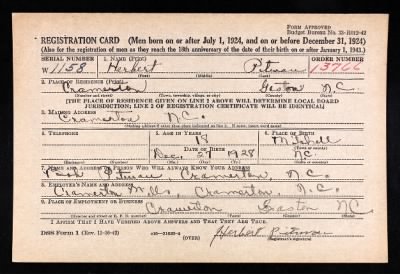 FORM APPROVED
Budget Bureau No. 33-R012-42
REGISTRATION CARD (Men born on or after July 1, 1924, and on or before December 31, 1924)
(Also for the registration of men as they reach the 18th anniversary of the date of their birth on or after January 1, 1943.)
SERIAL NUMBER 1. NAME (Print) ORDER NUMBER
W 1158 Herbert Pitman 13766
2. PLACE OF RESIDENCE (Print)
Cramerton Gaston N.C.
[THE PLACE OF RESIDENCE GIVEN ON LINE 2 ABOVE WILL DETERMINE LOCAL BOARD
JURISDICTION; LINE 2 OF REGISTRATION CERTIFICATE WILL BE IDENTICAL]
3. MAILING ADDRESS
Cramerton N.C.
[Mailing address if other than place indicated on line 2. If same, insert word same]
4. TELEPHONE 5. AGE IN YEARS 6. PLACE OF BIRTH
18 Mitchell
DATE OF BIRTH
Dec. 27 1928 N.C.
7. NAME AND ADDRESS OF PERSON WHO WILL ALWAYS KNOW YOUR ADDRESS
Pitman Cramerton, N.C.
8. EMPLOYER'S NAME AND ADDRESS
Cramerton Mills, Cramerton, N.C.
9. PLACE OF EMPLOYMENT OR BUSINESS
Cramerton Gaston NC
I AFFIRM THAT I HAVE VERIFIED ABOVE ANSWERS AND THAT THEY ARE TRUE.
DSS Form 1 (Rev. 11-16-42) (OVER) Herbert Pitman
(Registrant's signature)